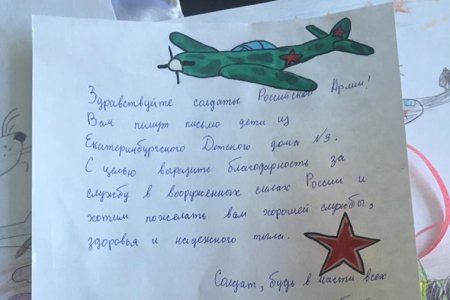 Здравствуйте солдаты Российской Армии!
Вам пишут письмо дети из
Екатеринбургского Детского дома №3.
С целью выразить благодарность за
службу в вооруженных силах России и
хотим пожелать вам хорошей службы,
здоровья и надежного тыла.
Солдат, будь в части всех